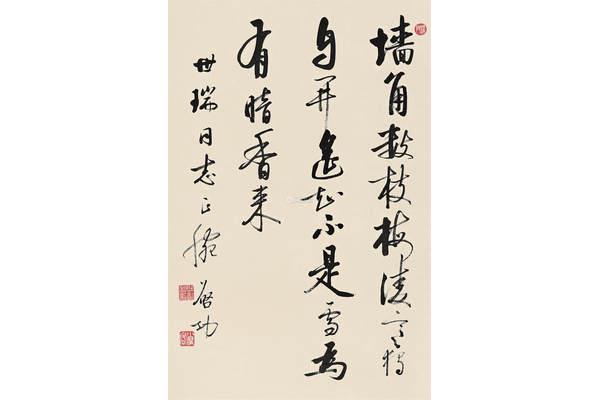 墙角数枝梅凌寒独
自开遥知不是雪为
有暗香来
世瑞同志正腕
启功